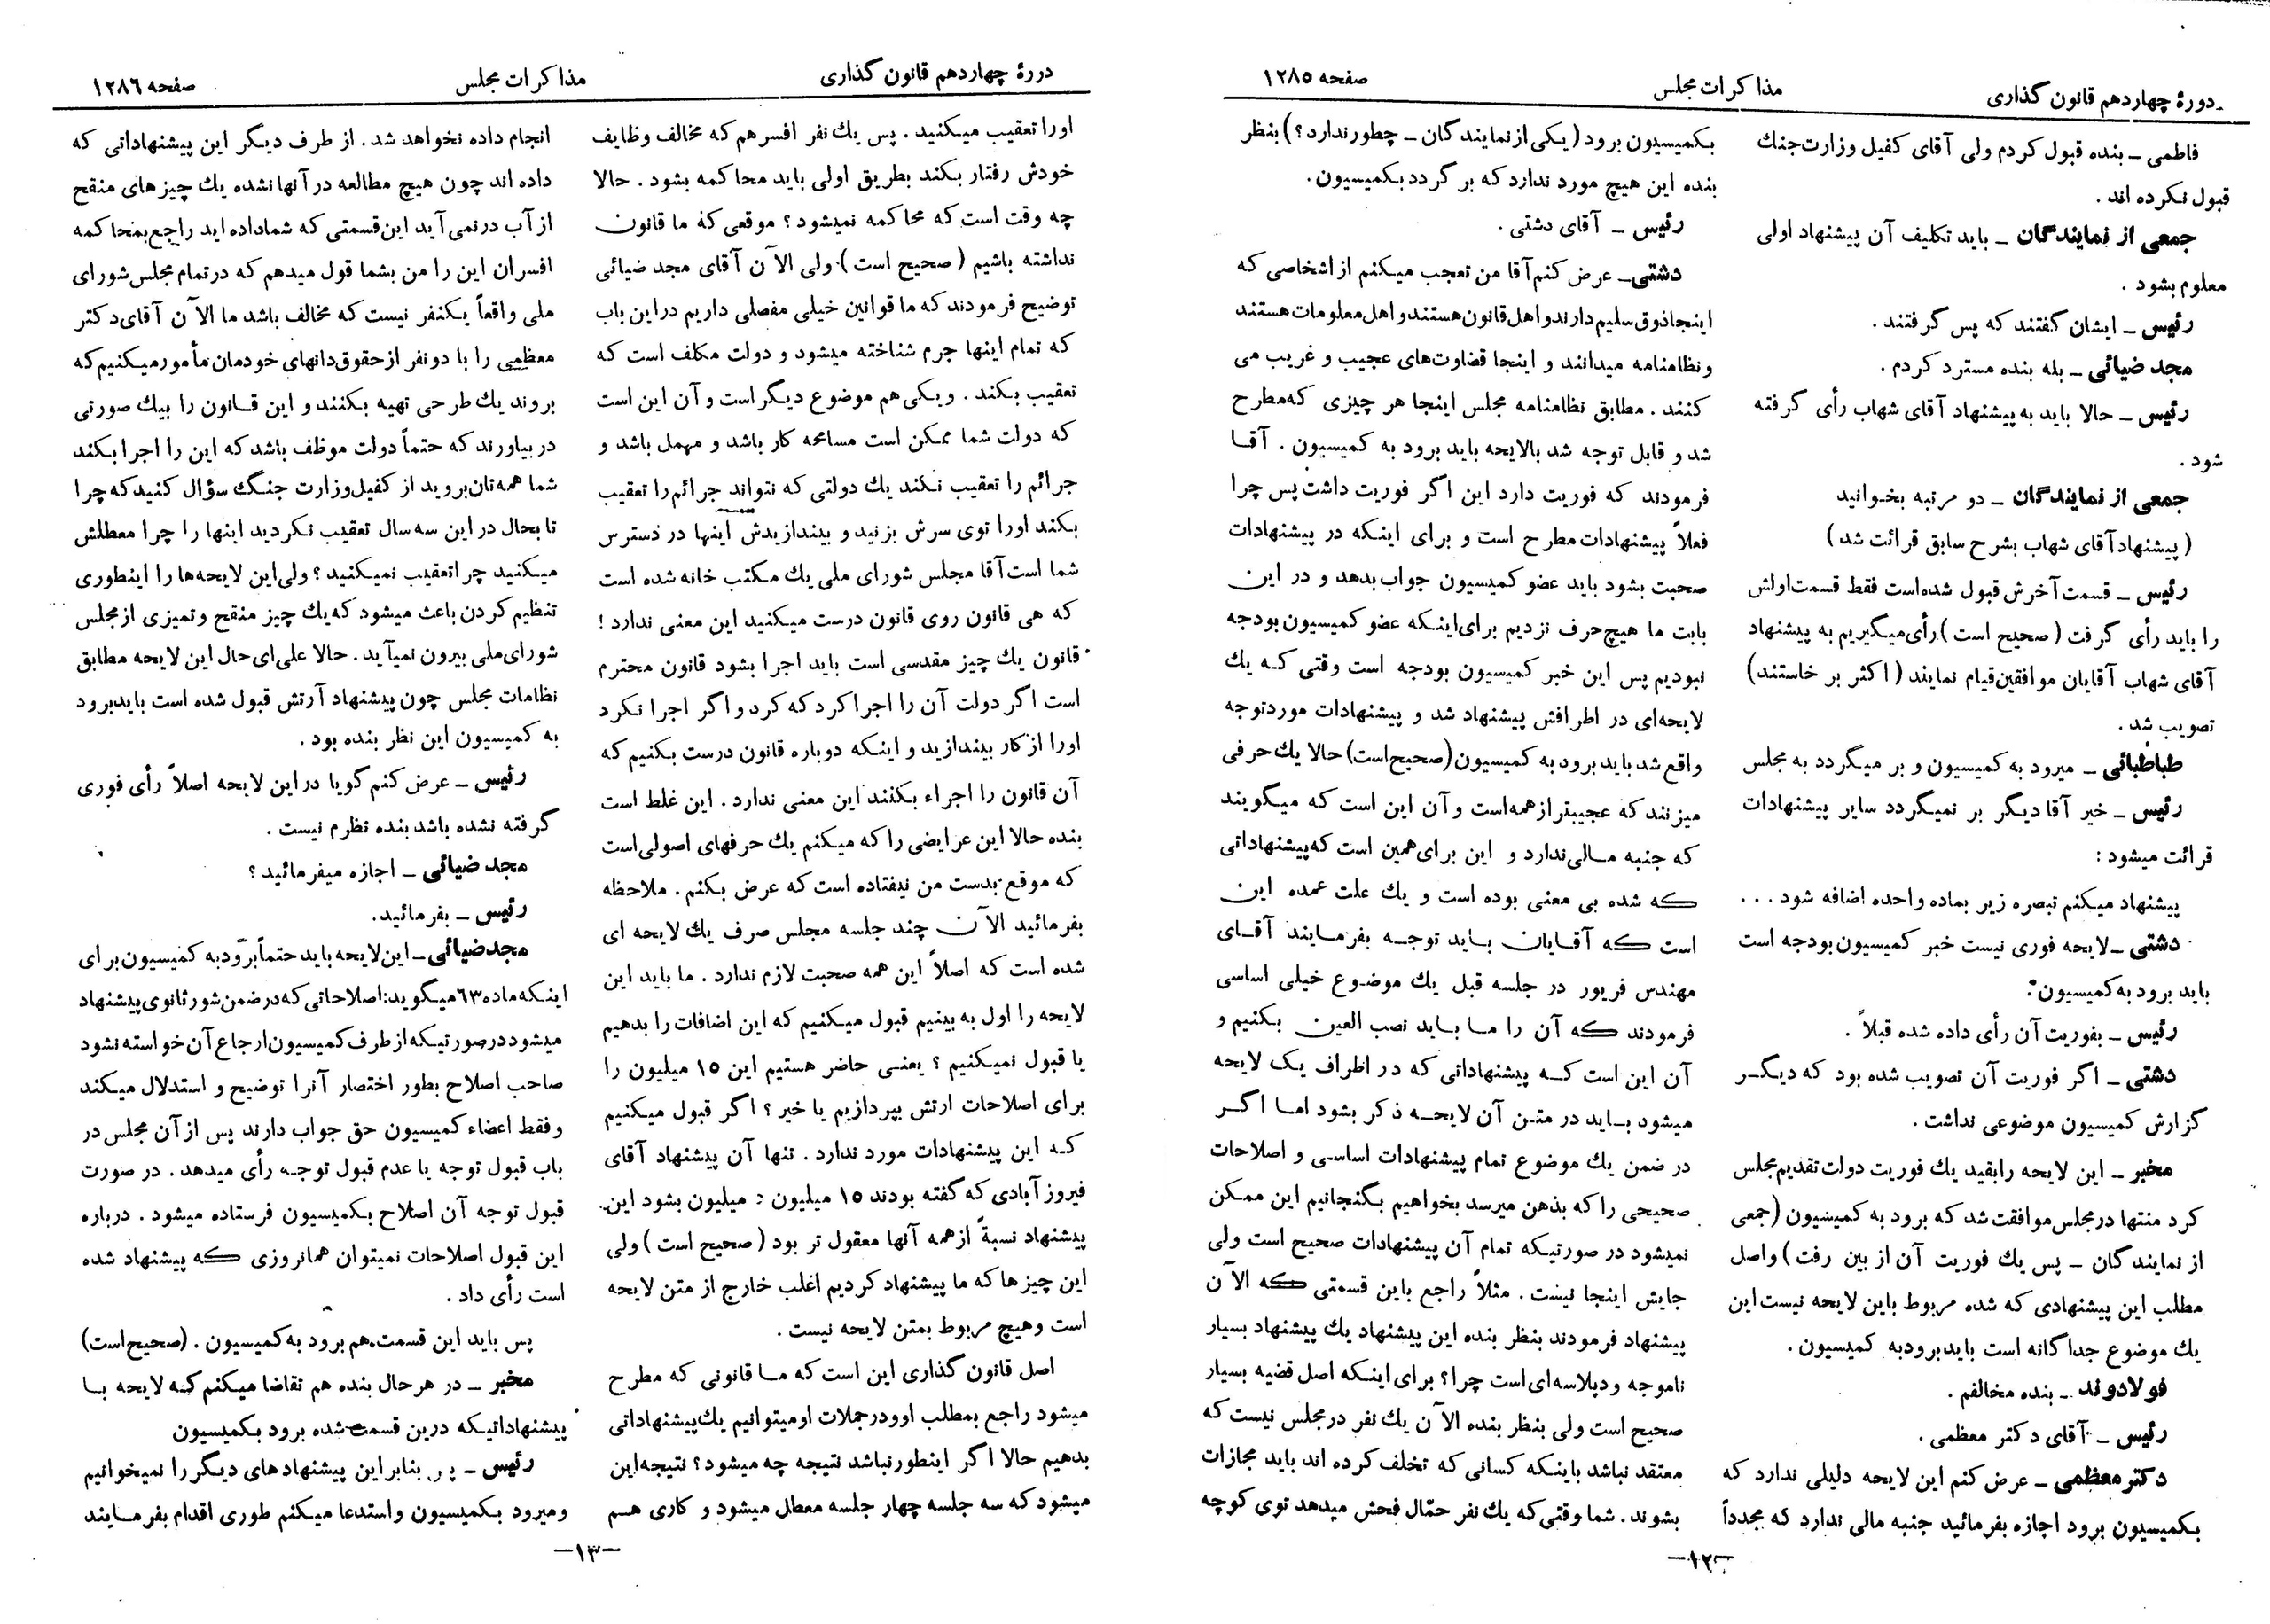 دورهٔ چهاردهم قانون گذاری
مذاکرات مجلس
صفحه ۱۲۸۵
فاطمی ــ بنده قبول کردم ولی آقای کفیل وزارت جنك
قبول نکرده اند .
جمعی از نمایندگان ــ باید تکلیف آن پیشنهاد اولی
معلوم بشود .
رئیس ــ ایشان گفتند که پس گرفتند .
مجد ضیائی ــ بله بنده مسترد کردم .
رئیس ــ حالا باید به پیشنهاد آقای شهاب رأی گرفته
شود .
جمعی از نمایندگان ــ دو مرتبه بخوانید
( پیشنهاد آقای شهاب بشرح سابق قرائت شد )
رئیس ــ قسمت آخرش قبول شده است فقط قسمت اولش
را باید رأی گرفت ( صحیح است ) رأی میگیریم به پیشنهاد
آقای شهاب آقایان موافقین قیام نمایند ( اکثر بر خاستند )
تصویب شد .
طباطبائی ــ میرود به کمیسیون و بر میگردد به مجلس
رئیس ــ خیر آقا دیگر بر نمیگردد سایر پیشنهادات
قرائت میشود :
پیشنهاد میکنم تبصره زیر بماده واحده اضافه شود ...
دشتی ــ لایحه فوری نیست خبر کمیسیون بودجه است
باید برود به کمیسیون .
رئیس ــ بفوریت آن رأی داده شده قبلاً .
دشتی ــ اگر فوریت آن تصویب شده بود که دیگر
گزارش کمیسیون موضوعی نداشت .
مخبر ــ این لایحه را بقید یك فوریت دولت تقدیم مجلس
کرد منتها در مجلس موافقت شد که برود به کمیسیون (جمعی
از نمایندگان ــ پس یك فوریت آن از بین رفت ) واصل
مطلب این پیشنهادی که شده مربوط باین لایحه نیست این
یك موضوع جداگانه است باید برود به کمیسیون .
فولادوند ــ بنده مخالفم .
رئیس ــ آقای دکتر معظمی .
دکتر معظمی ــ عرض کنم این لایحه دلیلی ندارد که
بکمیسیون برود اجازه بفرمائید جنبه مالی ندارد که مجدداً
بکمیسیون برود ( یکی از نمایندگان ــ چطور ندارد ؟ ) بنظر
بنده این هیچ مورد ندارد که بر گردد بکمیسیون .
رئیس ــ آقای دشتی .
دشتی ــ عرض کنم آقا من تعجب میکنم از اشخاصی که
اینجا ذوق سلیم دارند و اهل قانون هستند و اهل معلومات هستند
و نظامنامه میدانند و اینجا قضاوت‌های عجیب و غریب می
کنند . مطابق نظامنامه مجلس اینجا هر چیزی که مطرح
شد و قابل توجه شد بالایحه باید برود به کمیسیون . آقا
فرمودند که فوریت دارد این اگر فوریت داشت پس چرا
فعلاً پیشنهادات مطرح است و برای اینکه در پیشنهادات
صحبت بشود باید عضو کمیسیون جواب بدهد و در این
بابت ما هیچ حرف نزدیم برای اینکه عضو کمیسیون بودجه
نبودیم پس این خبر کمیسیون بودجه است وقتی که یك
لایحه‌ای در اطرافش پیشنهاد شد و پیشنهادات مورد توجه
واقع شد باید برود به کمیسیون (صحیح است) حالا یك حرفی
میزنند که عجیبتر از همه است و آن این است که میگویند
که جنبه مالی ندارد و این برای همین است که پیشنهاداتی
که شده بی معنی بوده است و یك علت عمده این
است که آقایان باید توجه بفرمایند آقای
مهندس فریور در جلسه قبل یك موضوع خیلی اساسی
فرمودند که آن را ما باید نصب العین بکنیم و
آن این است که پیشنهاداتی که در اطراف یک لایحه
میشود باید در متن آن لایحه ذکر بشود اما اگر
در ضمن یك موضوع تمام پیشنهادات اساسی و اصلاحات
صحیحی را که بذهن میرسد بخواهیم بگنجانیم این ممکن
نمیشود در صورتیکه تمام آن پیشنهادات صحیح است ولی
جایش اینجا نیست . مثلاً راجع باین قسمتی که الآن
پیشنهاد فرمودند بنظر بنده این پیشنهاد یك پیشنهاد بسیار
ناموجه و دپلاسه‌ای است چرا ؟ برای اینکه اصل قضیه بسیار
صحیح است ولی بنظر بنده الآن یك نفر در مجلس نیست که
معتقد نباشد باینکه کسانی که تخلف کرده اند باید مجازات
بشوند . شما وقتی که یك نفر حمّال فحش میدهد توی کوچه
ــ۱۲ــ
دورهٔ چهاردهم قانون گذاری
مذاکرات مجلس
صفحه ۱۲۸۶
اورا تعقیب میکنید . پس یك نفر افسر هم که مخالف وظایف
خودش رفتار بکند بطریق اولی باید محاکمه بشود . حالا
چه وقت است که محاکمه نمیشود ؟ موقعی که ما قانون
نداشته باشیم ( صحیح است ) ولی الآن آقای مجد ضیائی
توضیح فرمودند که ما قوانین خیلی مفصلی داریم در این باب
که تمام اینها جرم شناخته میشود و دولت مکلف است که
تعقیب بکند . و یکی هم موضوع دیگر است و آن این است
که دولت شما ممکن است مسامحه کار باشد و مهمل باشد و
جرائم را تعقیب نکند یك دولتی که نتواند جرائم را تعقیب
بکند اورا توی سرش بزنید و بیندازیدش اینها در دسترس
شما است آقا مجلس شورای ملی یك مکتب خانه شده است
که هی قانون روی قانون درست میکنید این معنی ندارد !
قانون یك چیز مقدسی است باید اجرا بشود قانون محترم
است اگر دولت آن را اجرا کرد که کرد و اگر اجرا نکرد
اورا از کار بیندازید و اینکه دوباره قانون درست بکنیم که
آن قانون را اجراء بکنند این معنی ندارد . این غلط است
بنده حالا این عرایضی را که میکنم یك حرفهای اصولی است
که موقع بدست من نیفتاده است که عرض بکنم . ملاحظه
بفرمائید الآن چند جلسه مجلس صرف یك لایحه ای
شده است که اصلاً این همه صحبت لازم ندارد . ما باید این
لایحه را اول به بینیم قبول میکنیم که این اضافات را بدهیم
یا قبول نمیکنیم ؟ یعنی حاضر هستیم این ۱۵ میلیون را
برای اصلاحات ارتش بپردازیم یا خیر ؟ اگر قبول میکنیم
که این پیشنهادات مورد ندارد . تنها آن پیشنهاد آقای
فیروز آبادی که گفته بودند ۱۵ میلیون میلیون بشود این
پیشنهاد نسبةً از همه آنها معقول تر بود ( صحیح است ) ولی
این چیزها که ما پیشنهاد کردیم اغلب خارج از متن لایحه
است و هیچ مربوط بمتن لایحه نیست .
اصل قانون گذاری این است که ما قانونی که مطرح
میشود راجع بمطلب او و در جملات او میتوانیم یك پیشنهاداتی
بدهیم حالا اگر اینطور نباشد نتیجه چه میشود ؟ نتیجه این
میشود که سه جلسه چهار جلسه معطل میشود و کاری هم
انجام داده نخواهد شد . از طرف دیگر این پیشنهاداتی که
داده اند چون هیچ مطالعه در آنها نشده یك چیزهای منقح
از آب در نمی آید این قسمتی که شما داده اید راجع بمحاکمه
افسران این را من بشما قول میدهم که در تمام مجلس شورای
ملی واقعاً یکنفر نیست که مخالف باشد ما الآن آقای دکتر
معظمی را با دو نفر از حقوق دانهای خودمان مأمور میکنیم که
بروند یك طرحی تهیه بکنند و این قانون را بیك صورتی
در بیاورند که حتماً دولت موظف باشد که این را اجرا بکند
شما همه‌تان بروید از کفیل وزارت جنگ سؤال کنید که چرا
تا بحال در این سه سال تعقیب نکردید اینها را چرا معطلش
میکنید چرا تعقیب نمیکنید ؟ ولی این لایحه‌ها را اینطوری
تنظیم کردن باعث میشود که یك چیز منقح و تمیزی از مجلس
شورای ملی بیرون نمیآید . حالا علی ای حال این لایحه مطابق
نظامات مجلس چون پیشنهاد آرتش قبول شده است باید برود
به کمیسیون این نظر بنده بود .
رئیس ــ عرض کنم گویا در این لایحه اصلاً رأی فوری
گرفته نشده باشد بنده نظرم نیست .
مجد ضیائی ــ اجازه میفرمائید ؟
رئیس ــ بفرمائید .
مجد ضیائی ــ این لایحه باید حتماً برود به کمیسیون برای
اینکه ماده ۶۳ میگوید: اصلاحاتی که در ضمن شور ثانوی پیشنهاد
میشود در صورتیکه از طرف کمیسیون ارجاع آن خواسته نشود
صاحب اصلاح بطور اختصار آنرا توضیح و استدلال میکند
و فقط اعضاء کمیسیون حق جواب دارند پس از آن مجلس در
باب قبول توجه یا عدم قبول توجه رأی میدهد . در صورت
قبول توجه آن اصلاح بکمیسیون فرستاده میشود . درباره
این قبول اصلاحات نمیتوان همانروزی که پیشنهاد شده
است رأی داد .
پس باید این قسمت هم برود به کمیسیون . (صحیح است)
مخبر ــ در هر حال بنده هم تقاضا میکنم که لایحه با
پیشنهاداتیکه درین قسمت شده برود بکمیسیون
رئیس ــ بنابراین پیشنهادهای دیگر را نمیخوانیم
و میرود بکمیسیون و استدعا میکنم طوری اقدام بفرمایند
ــ۱۳ــ